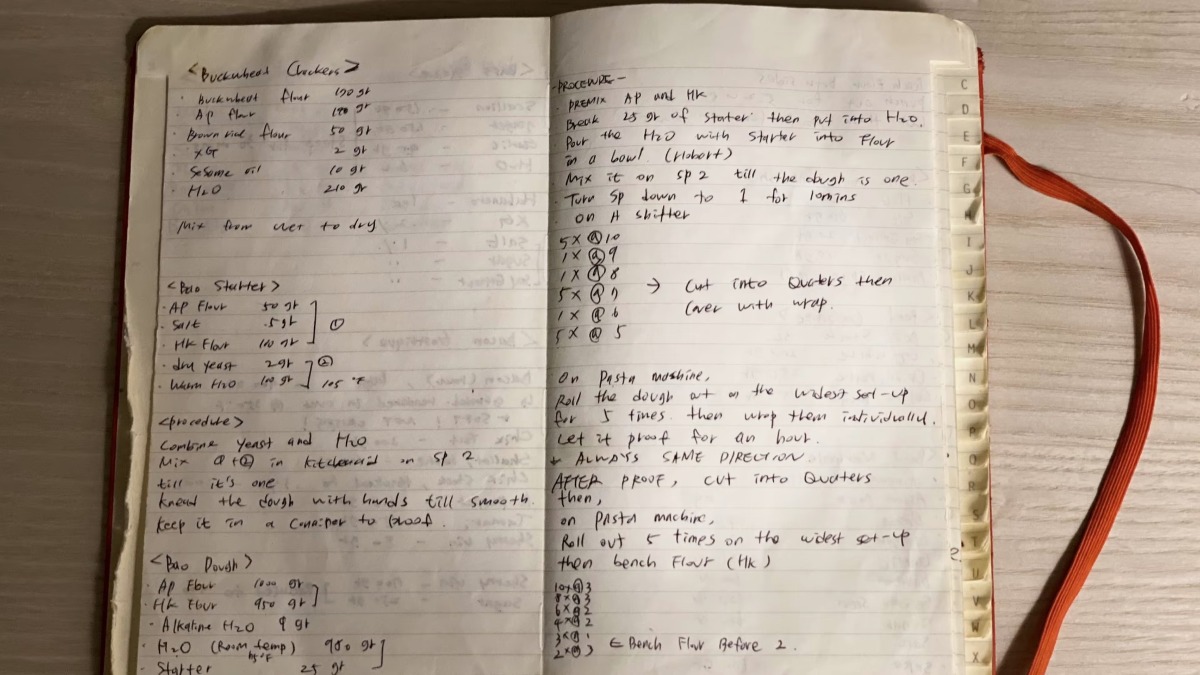 <Buckwheat Crackers>
· Buckwheat flour
· AP flour
· Brown rice flour 50 gr
· XG 2 gr
· Sesame oil 10 gr
· H2O 210 gr
Mix from wet to dry
<Bao Starter>
· AP Flour 50 gr
· Salt .5 gr
· HK Flour 100 gr
①
· dry yeast 2 gr
· Warm H2O 100 gr
② 105 °F
<procedure>
Combine yeast and H2O
Mix ①+② in kitchenaid on sp 2
till it's one
knead the dough with hands till smooth.
keep it in a to proof.
<Bao Dough>
· AP Flour 1000 gr
· HK Flour 950 gr
· Alkaline H2O 9 gr
· H2O (Room temp) 950 gr
· Starter 25 gr
-PROCEDURE-
· PREMIX AP and HK
Break 25 gr of starter then put into H2O.
Pour the H2O with Starter into Flour
in a bowl. (Hobart)
· Mix it on sp 2 till the dough is one.
· Turn Sp down to 1 for 10mins
· on A shifter
5 × @ 10
1 × @ 9
1 × @ 8
5 × @ 7
1 × @ 6
5 × @ 5
→ Cut into Quaters then
Cover with wrap.
On Pasta machine,
Roll the dough out on the widest set-up
for 5 times. then wrap them individually.
Let it proof for an hour.
* ALWAYS SAME DIRECTION
AFTER PROOF, cut into Quaters
then,
on Pasta machine,
Roll out 5 times on the widest set-up
then bench Flour (HK)
10×@3
8×@3
6×@2
4×@2
3×@1
∈ Bench Flour Before 2.
2
C
D
E
F
G
H
I
J
K
L
M
N
O
P
Q
R
S
T
U
V
W
X